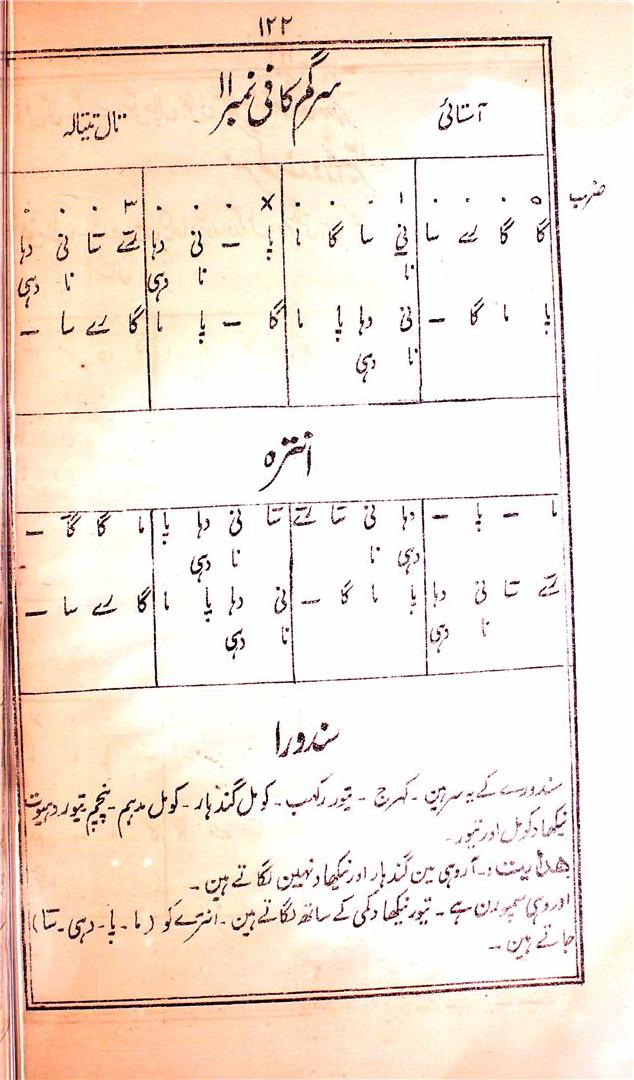 ۱۲۳
سرگم کافی نمبر ۱۱
آستائی
تال تیتالہ
ضرب
۵ ۰ ۰ ۰ ۱ ۰ ۰ ۰ × ۰ ۰ ۰ ۳ ۰ ۰ ۰
گا گا رے سا نی سا گا ما پا - نی دہا تے تا نی دہا
نا نا دہی نا دہی
پا ما گا - نی دہا پا ما گا - پا ما گا رے سا -
نا دہی
انترہ
ما - پا - دہا نی تا تے تا نی دہا پا ما گا گا -
دہی نا نا دہی
تے تا نی دہا پا ما گا - نی دہا پا ما گا رے سا -
نا دہی نا دہی
سندورا
سندورے کے یہ سر ہین - کہرج - تیور رکہب - کومل گندہار - کومل مدہم - پنچم تیور دہیوت
نیکھاد کومل اور تیور -
ھدایت :- آروہی مین گندہار اور نیکھاد نہین لگاتے ہین -
اوروہی سمپورن ہے - تیور نیکھاد کمی کے ساتھ لگاتے ہین - انترے کو (ما - پا - دہی - تا)
جاتے ہین -